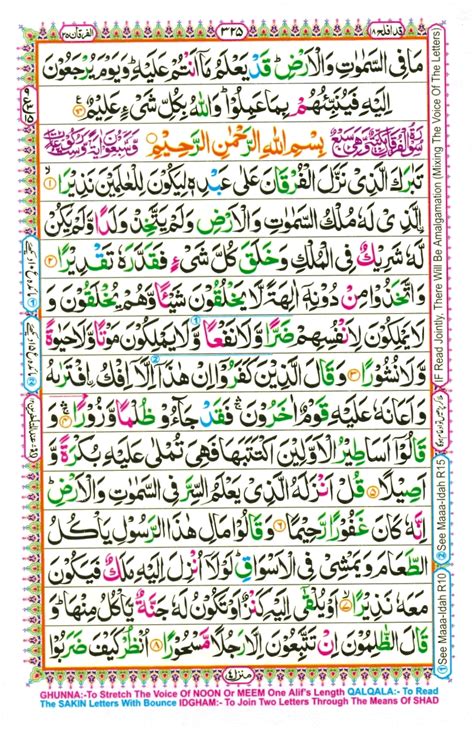 قد افلح ۱۸
۳۲۵
الفرقان ۲۵
مَا فِی السَّمٰوٰتِ وَالْاَرْضِ ؕ قَدْ یَعْلَمُ مَاۤ اَنْتُمْ عَلَیْهِ ؕ وَیَوْمَ یُرْجَعُوْنَ
اِلَیْهِ فَیُنَبِّئُهُمْ بِمَا عَمِلُوْا ؕ وَاللّٰهُ بِكُلِّ شَیْءٍ عَلِیْمٌ
بِسْمِ اللّٰهِ الرَّحْمٰنِ الرَّحِیْمِ
تَبٰرَكَ الَّذِیْ نَزَّلَ الْفُرْقَانَ عَلٰی عَبْدِهٖ لِیَكُوْنَ لِلْعٰلَمِیْنَ نَذِیْرَا ۙ﴿۱﴾
الَّذِیْ لَهٗ مُلْكُ السَّمٰوٰتِ وَالْاَرْضِ وَلَمْ یَتَّخِذْ وَلَدًا وَّلَمْ یَكُنْ
لَّهٗ شَرِیْكٌ فِی الْمُلْكِ وَخَلَقَ كُلَّ شَیْءٍ فَقَدَّرَهٗ تَقْدِیْرًا ﴿۲﴾
وَاتَّخَذُوْا مِنْ دُوْنِهٖۤ اٰلِهَةً لَّا یَخْلُقُوْنَ شَیْئًا وَّهُمْ یُخْلَقُوْنَ وَ
لَا یَمْلِكُوْنَ لِاَنْفُسِهِمْ ضَرًّا وَّلَا نَفْعًا وَّلَا یَمْلِكُوْنَ مَوْتًا وَّلَا حَیٰوةً
وَّلَا نُشُوْرًا ﴿۳﴾ وَقَالَ الَّذِیْنَ كَفَرُوْۤا اِنْ هٰذَاۤ اِلَّاۤ اِفْكُ اِ۟فْتَرٰىهُ
وَاَعَانَهٗ عَلَیْهِ قَوْمٌ اٰخَرُوْنَ ۛۚ فَقَدْ جَآءُوْ ظُلْمًا وَّزُوْرًا ۛۚ﴿۴﴾ وَ
قَالُوْۤا اَسَاطِیْرُ الْاَوَّلِیْنَ اكْتَتَبَهَا فَهِیَ تُمْلٰی عَلَیْهِ بُكْرَةً وَّ
اَصِیْلًا ﴿۵﴾ قُلْ اَنْزَلَهُ الَّذِیْ یَعْلَمُ السِّرَّ فِی السَّمٰوٰتِ وَالْاَرْضِ ؕ
اِنَّهٗ كَانَ غَفُوْرًا رَّحِیْمًا ﴿۶﴾ وَقَالُوْا مَالِ هٰذَا الرَّسُوْلِ یَاْكُلُ
الطَّعَامَ وَیَمْشِیْ فِی الْاَسْوَاقِ ؕ لَوْلَاۤ اُنْزِلَ اِلَیْهِ مَلَكٌ فَیَكُوْنَ
مَعَهٗ نَذِیْرًا ۙ﴿۷﴾ اَوْ یُلْقٰۤی اِلَیْهِ كَنْزٌ اَوْ تَكُوْنُ لَهٗ جَنَّةٌ یَّاْكُلُ مِنْهَا ؕ وَ
قَالَ الظّٰلِمُوْنَ اِنْ تَتَّبِعُوْنَ اِلَّا رَجُلًا مَّسْحُوْرًا ﴿۸﴾ اُنْظُرْ كَیْفَ ضَرَبُوْا
منزل ۴
① See Maaa-Idah R10 ② See Maaa-Idah R15
IF Read Jointly, There Will Be Amalgamation (Mixing The Voice Of The Letters)
GHUNNA:-To Stretch The Voice Of NOON Or MEEM One Alif's Length QALQALA:- To Read
The SAKIN Letters With Bounce IDGHAM:- To Join Two Letters Through The Means Of SHAD